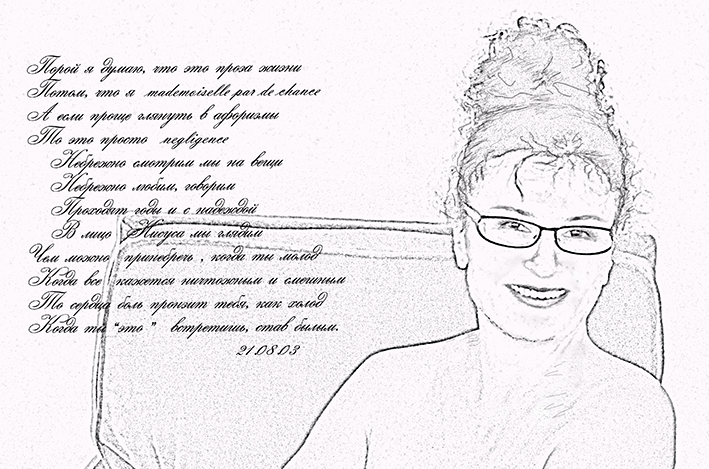 Порой я думаю, что это проза жизни
Потом, что я mademoiselle par de chance
А если проще глянуть в афоризмы
То это просто negligence
Небрежно смотрим мы на вещи
Небрежно любим, говорим
Проходят годы и с надеждой
В лицо Иисуса мы глядим
Чем можно принебречь, когда ты молод
Когда все кажется ничтожным и смешным
То сердца боль пронзит тебя, как холод
Когда ты "это" встретишь, став былым.
21.08.03